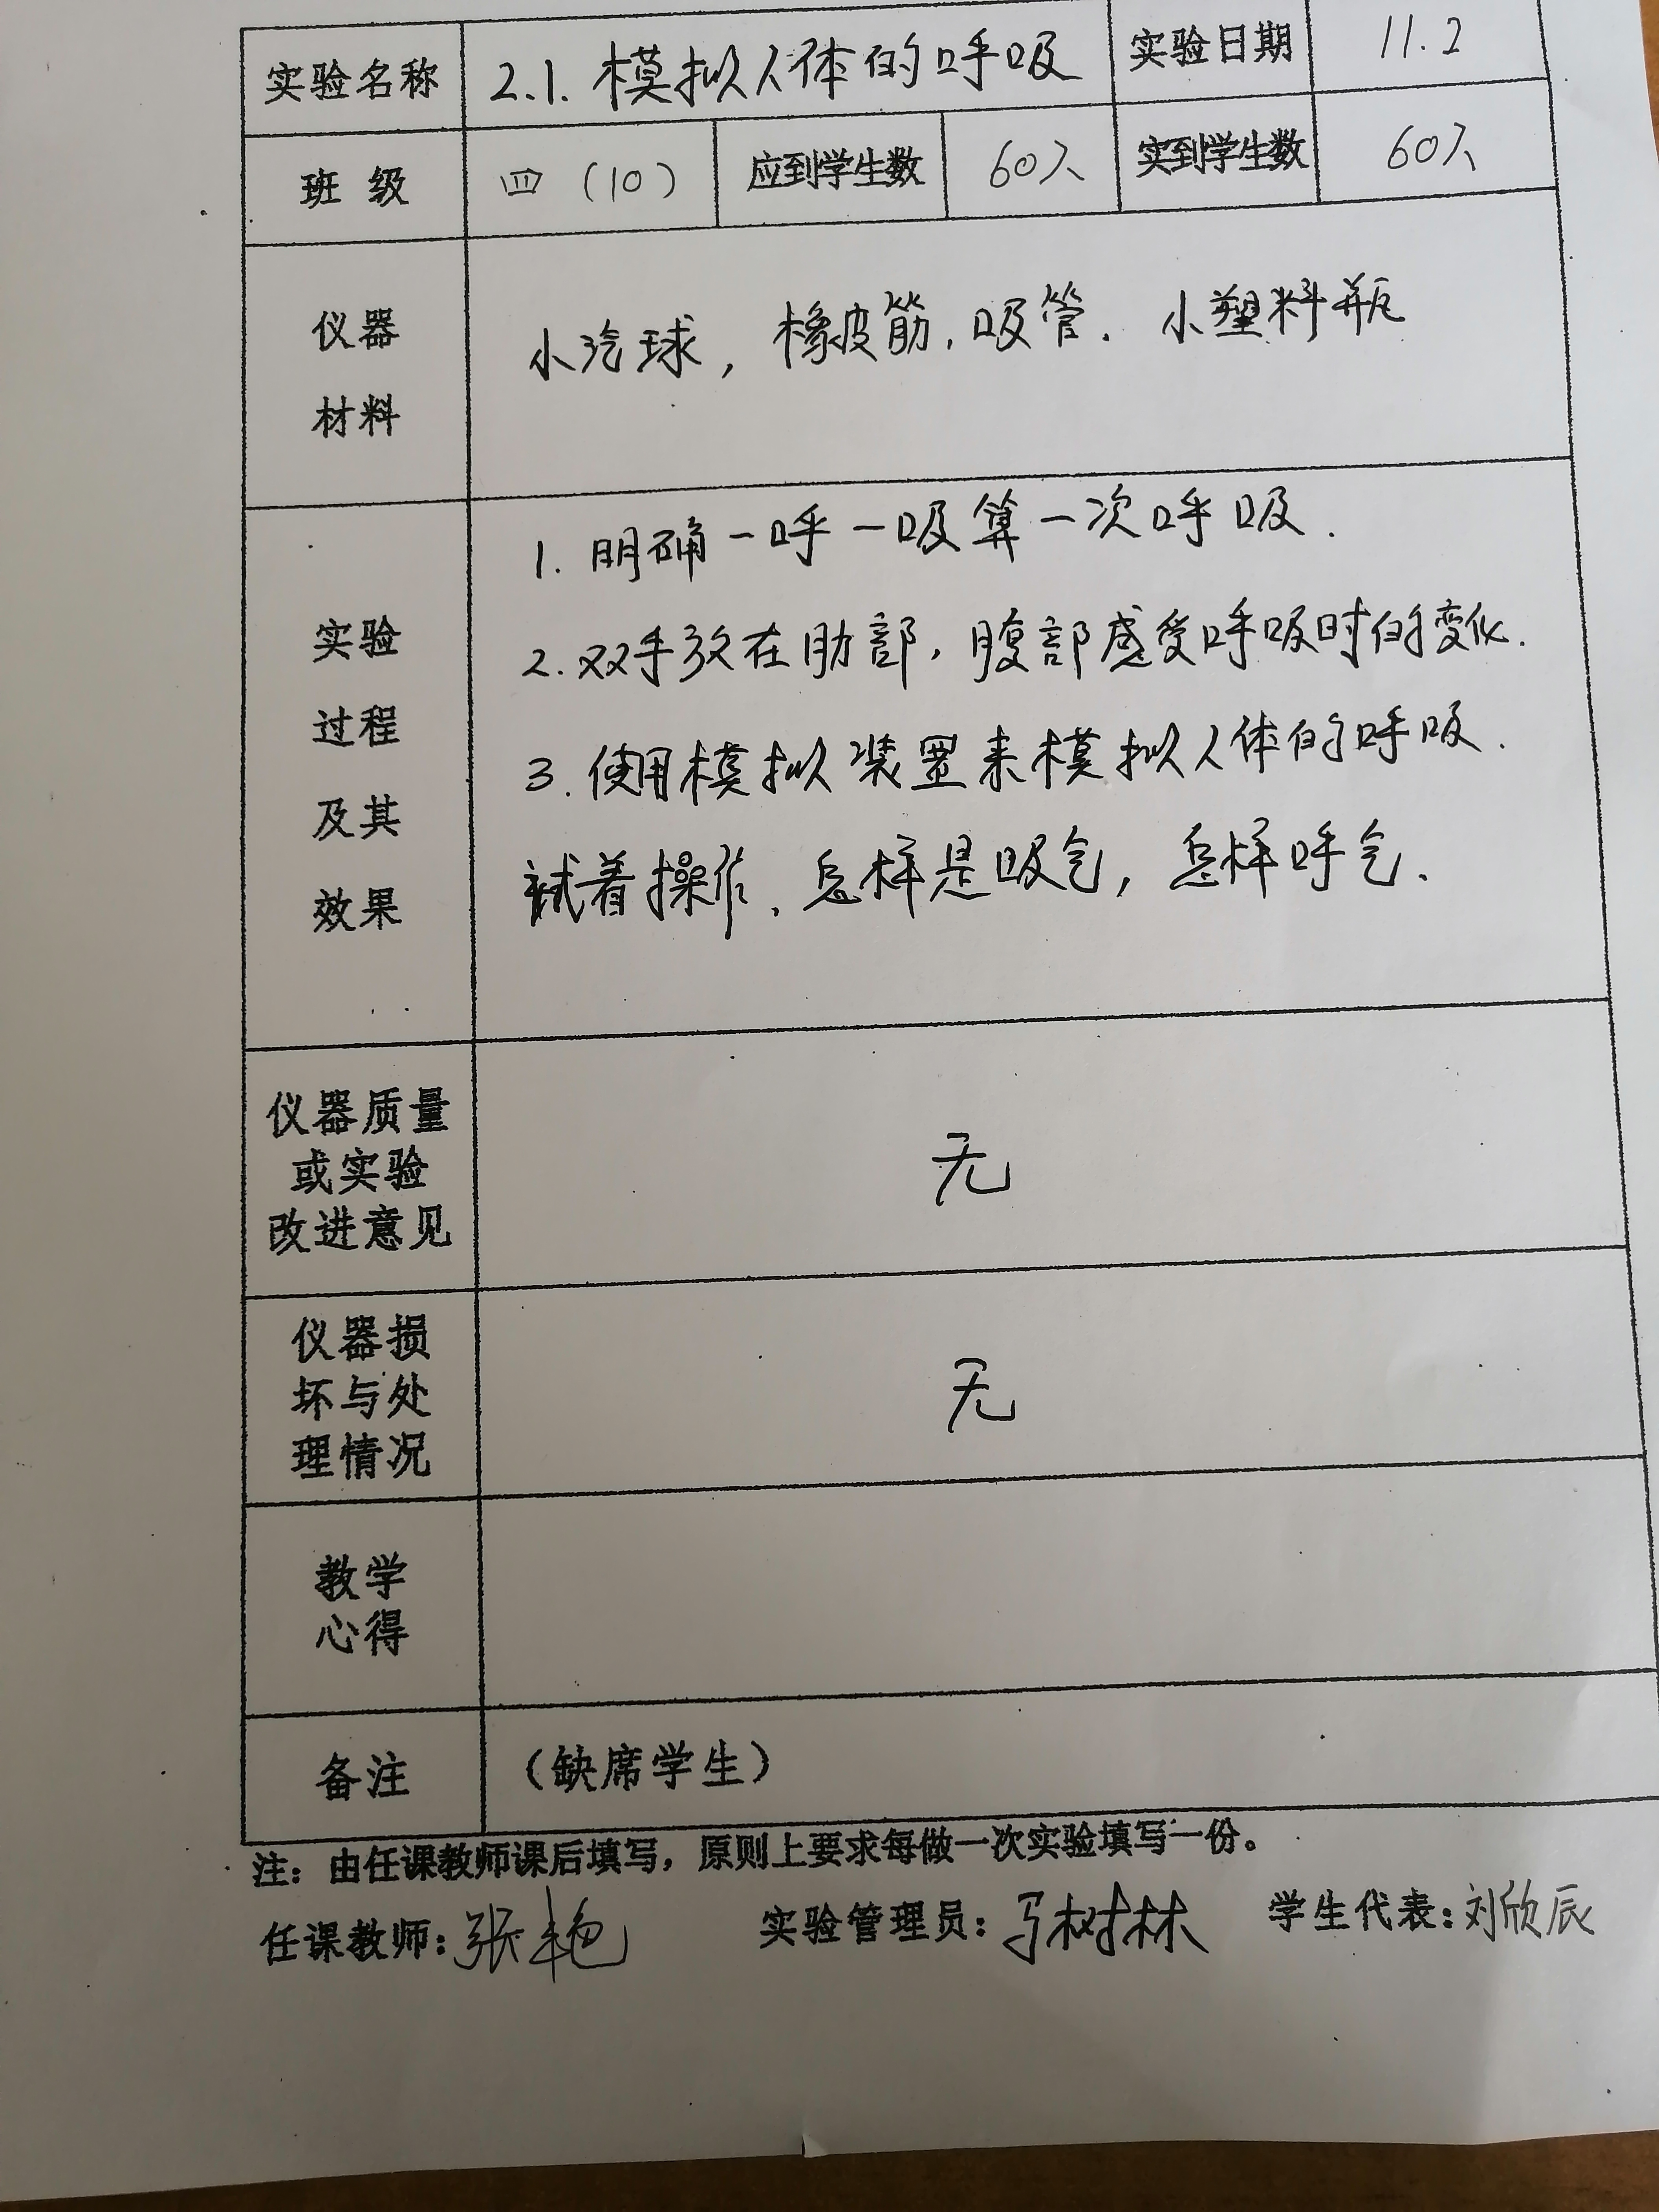 实验名称 2.1. 模拟人体的呼吸 实验日期 11.2
班级 四（10） 应到学生数 60人 实到学生数 60人
仪器
材料
小汽球，橡皮筋，吸管．小塑料瓶
实验
过程
及其
效果
1. 明确一呼一吸算一次呼吸．
2. 双手放在肋部，腹部感受呼吸时的变化．
3. 使用模拟装置来模拟人体的呼吸．
试着操作、怎样是吸气，怎样呼气．
仪器质量
或实验
改进意见
无
仪器损
坏与处
理情况
无
教学
心得
备注 （缺席学生）
注：由任课教师课后填写，原则上要求每做一次实验填写一份。
任课教师：张艳 实验管理员：马树林 学生代表：刘欣辰